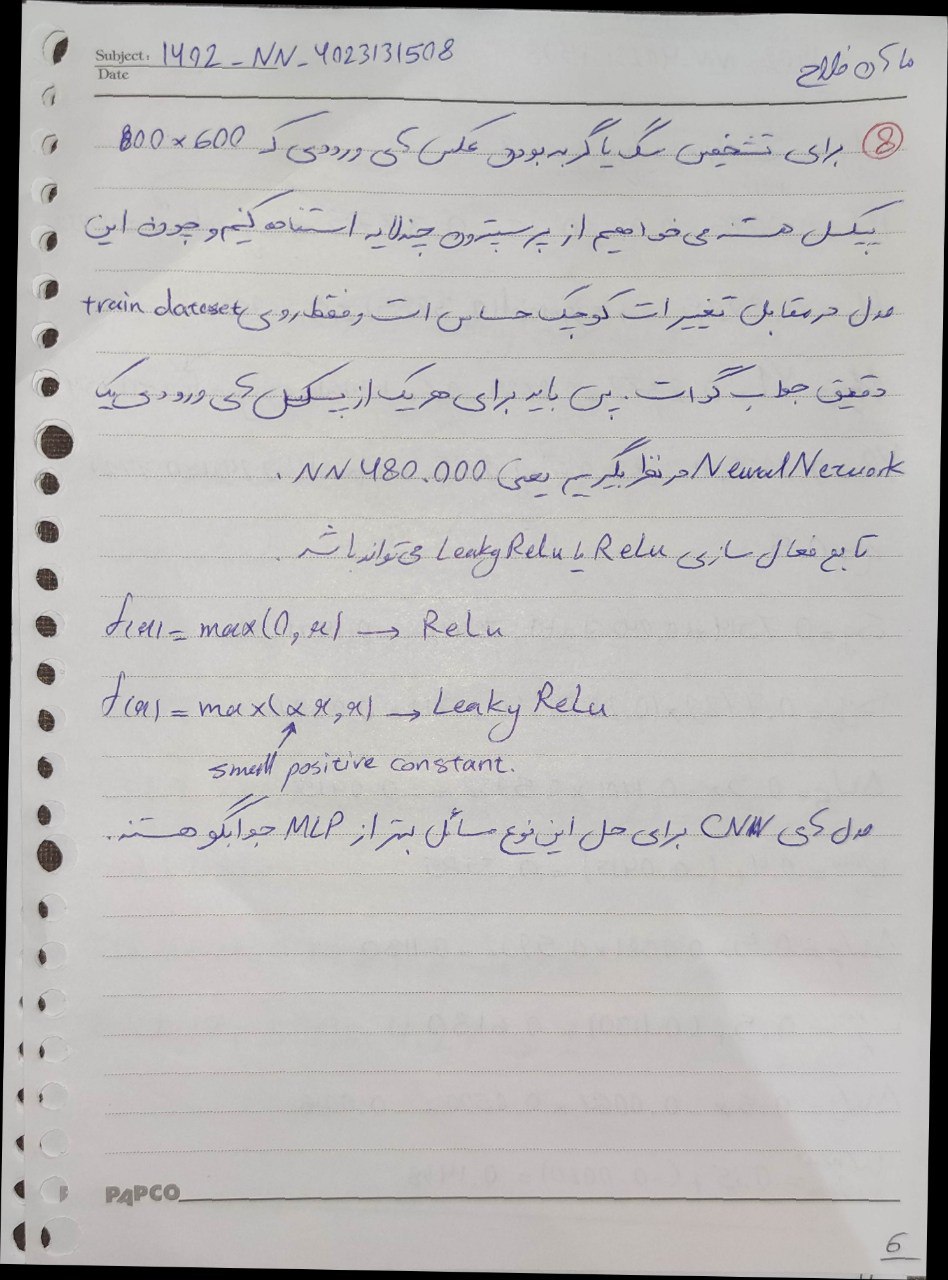 Subject: 1402-NN-4023131508
Date
8 برای تشخیص سگ یا گربه بودن عکس های ورودی که 800×600
پیکسل هستند می خواهیم از پرسپترون چندلایه استفاده کنیم و چون این
مدل در مقابل تغییرات کوچک حساس است و فقط روی train dataset
دقیق جواب گو است. پس باید برای هر یک از پیکسل های ورودی یک
Neural Network در نظر بگیریم یعنی 480.000 NN.
تابع فعال سازی Relu یا Leaky Relu می تواند باشد.
f(x) = max(0, x) → Relu
f(x) = max(αx, x) → Leaky Relu
small positive constant.
مدل های CNN برای حل این نوع مسائل بهتر از MLP جوابگو هستند.
PAPCO
6